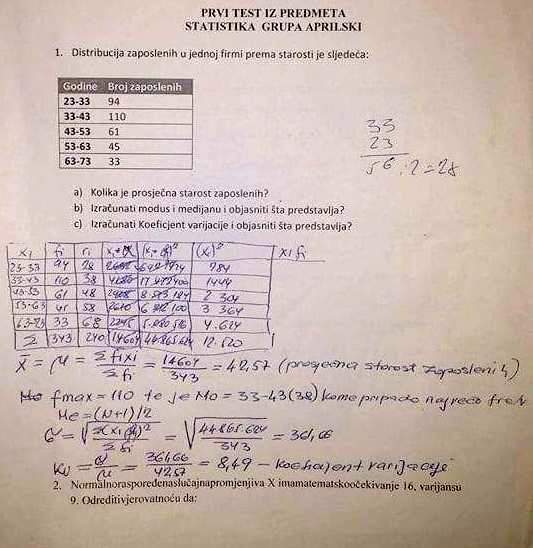 PRVI TEST IZ PREDMETA
STATISTIKA GRUPA APRILSKI
1. Distribucija zaposlenih u jednoj firmi prema starosti je sljedeća:
Godine Broj zaposlenih
23-33 94
33-43 110
43-53 61
53-63 45
63-73 33
33
23
56:2=28
a) Kolika je prosječna starost zaposlenih?
b) Izračunati modus i medijanu i objasniti šta predstavlja?
c) Izračunati Koeficjent varijacije i objasniti šta predstavlja?
xi fi ri (xi)² xi fi
23-33 94 28 784
33-43 110 38 1444
43-53 61 48 2304
53-63 45 58 3364
63-73 33 68 4.624
Σ 343 240 14604 44.865.624 12.520
X̄ = μ = Σfixi / Σfi = 14604 / 343 = 42,57 (prosječna starost zaposlenih)
fmax = 110 te je Mo = 33-43(38) kome pripada najveća frek
Me = (N+1)/2
= √ = √ 44.865.624 / 343 = 361,66
Kv = σ / μ = 361,66 / 42,57 = 8,49 - koeficijent varijacije
2. Normalnoraspoređenaslučajnapromjenjiva X imamatematskoočekivanje 16, varijansu
9. Odreditivjerovatnoću da: